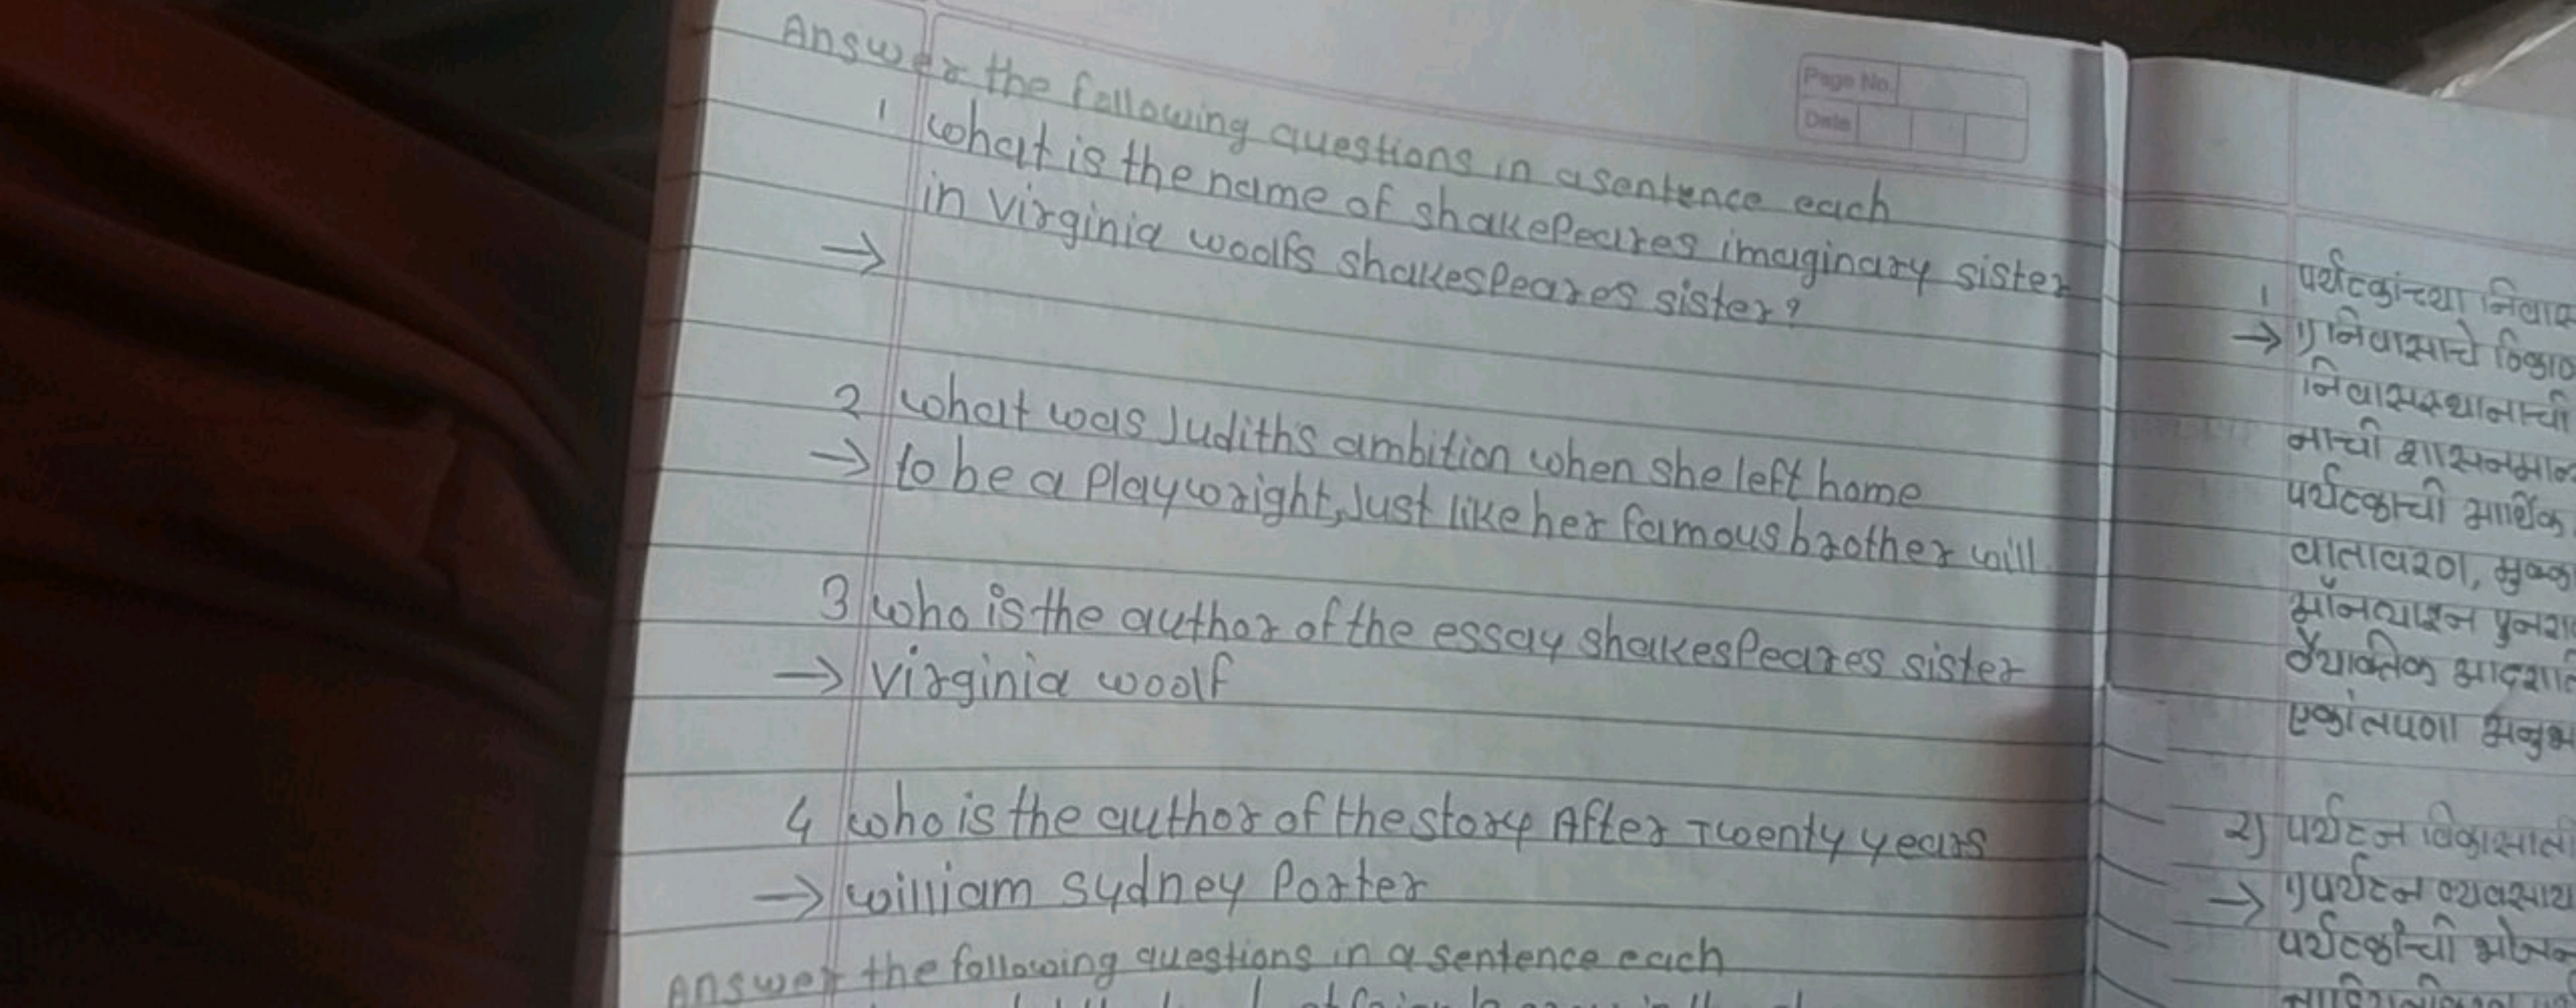 Page No.
Date
Answer the following questions in a sentence each
1 what is the name of shakepeares imaginary sister
in virginia woolfs shakespeares sister?
→
2 what was Judith's ambition when she left home
→ to be a playwright, Just like her famous brother will
3 who is the author of the essay shakespeares sister
→ virginia woolf
4 who is the author of the story After Twenty years
→ william sydney Porter
Answer the following questions in a sentence each
1 पर्यटकांच्या निवास
→ १) निवासाचे ठिकाण
निवासस्थानाची
नाची शासनमान
पर्यटकाची आर्थिक
वातावरण,
ऑनलाइन
वैयक्तिक
एकांतपणा अनुभ
२) पर्यटन विकासात
→ १) पर्यटन व्यवसाय
पर्यटकांची भोजन